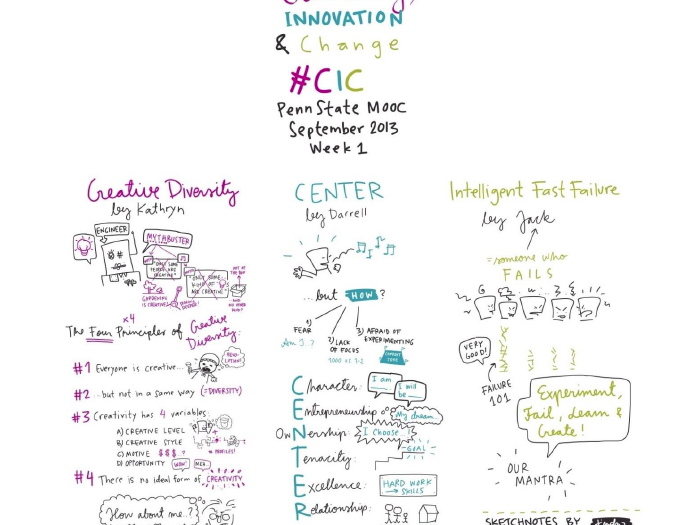 INNOVATION
& Change
#CIC
Penn State MOOC
September 2013
Week 1
Creative Diversity
by Kathryn
ENGINEER
MYTHBUSTER
x4
The Four Principles of Creative Diversity:
#1 Everyone is creative...
#2 ...but not in a same way (=DIVERSITY)
#3 Creativity has 4 variables:
A) CREATIVE LEVEL
B) CREATIVE STYLE
C) MOTIVE $$$ ?
D) OPPORTUNITY
#4 There is no ideal form of CREATIVITY
How about me..?
CENTER
by Darrell
...but HOW?
1) FEAR
2) LACK OF FOCUS
3) AFRAID OF EXPERIMENTING
COMFORT ZONE
Character: I am I will be
Entrepreneurship My dream
Ownership: I choose..!
Tenacity: GOAL
Excellence: HARD WORK → SKILLS
Relationship:
Intelligent Fast Failure
by Jack
=someone who
FAILS
VERY GOOD!
FAILURE 101
Experiment,
Fail, Learn &
Create!
OUR
MANTRA
SKETCHNOTES BY